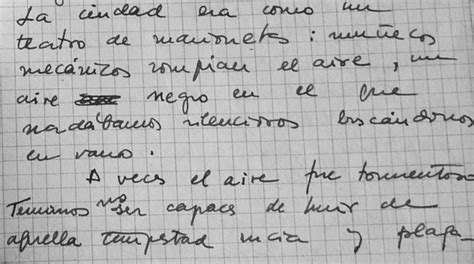 La ciudad era como un
teatro de marionetas: muñecos
mecánicos rompían el aire, un
aire negro en el que
nadábamos silenciosos buscándonos
en vano.
A veces el aire fue tormentoso
Temíamos no ser capaces de huir de
aquella tempestad sucia y plaga